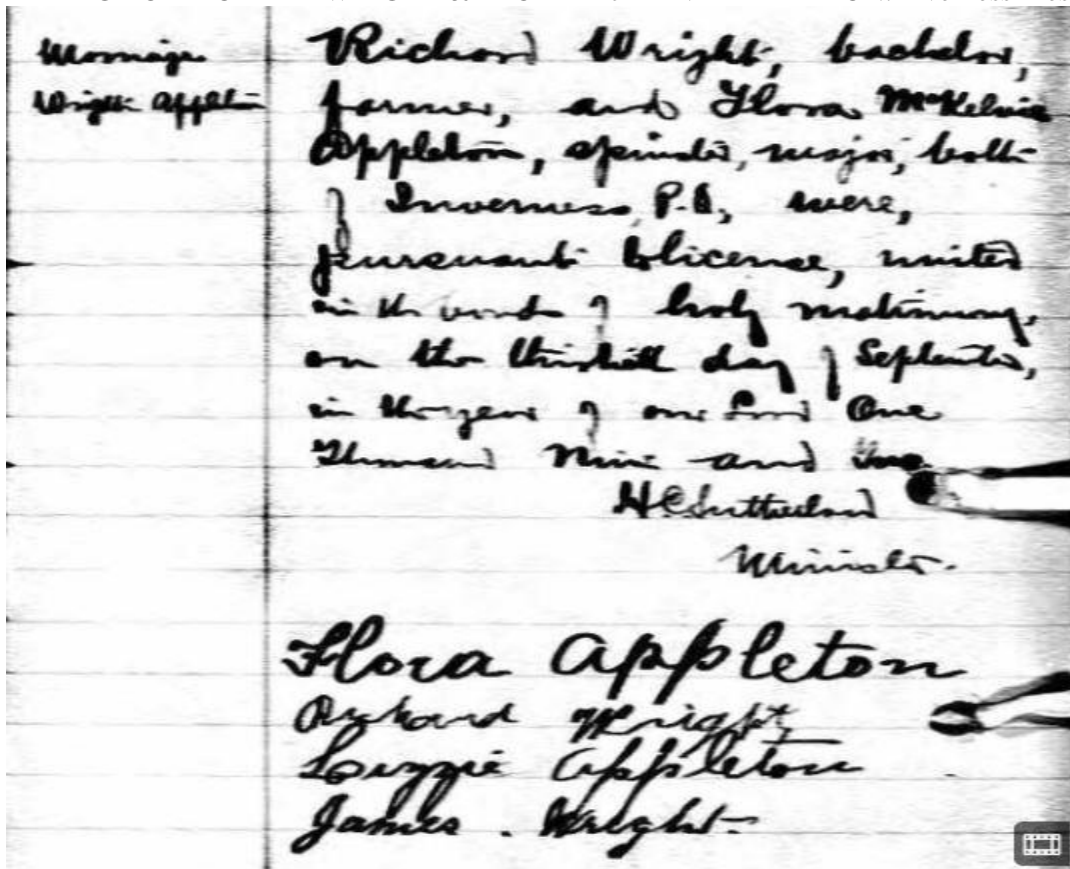 Marriage
Wright Appleton
Richard Wright, bachelor,
farmer, and Flora McKelvie
Appleton, spinster, major, both
of Inverness, P.Q., were,
pursuant to license, united
in the bonds of holy matrimony,
on the thirtieth day of September,
in the year of our Lord One
Thousand Nine and Two.
H C Sutherland
Minister.
Flora Appleton
Richard Wright
Lizzie Appleton
James . Wright.